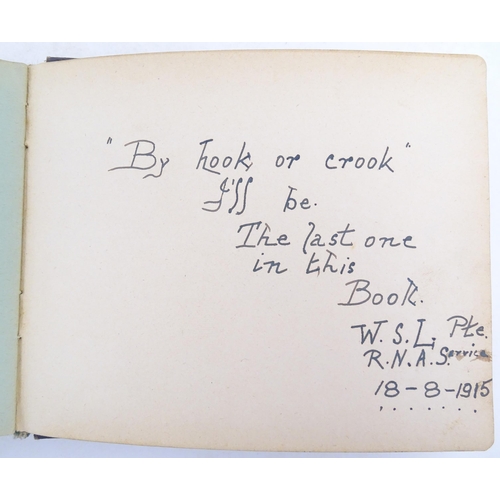 "By hook or crook"
I'll be.
The last one
in this
Book.
W. S. L. Pte.
R. N. A. S. Service
18 - 8 - 1915